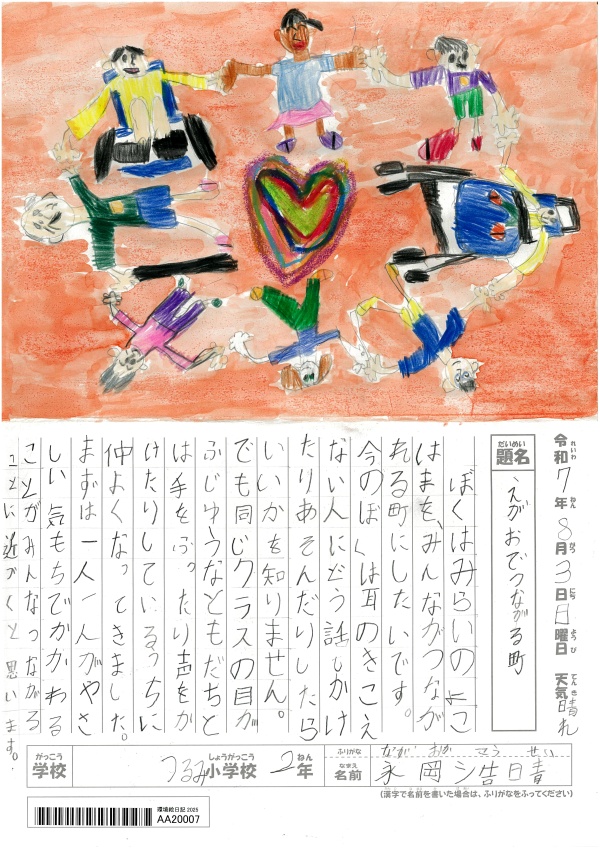 令和7年8月3日日曜日 天気晴れ
れいわ ねん がつ にち ようび てんき
だいめい
題名
えがおでつながる町
ぼくはみらいのよこ
はまを、みんながつなが
れる町にしたいです。
今のぼくは耳のきこえ
ない人にどう話しかけ
たりあそんだりしたら
いいかを知りません。
でも同じクラスの目が
ふじゆうなともだちと
は手をふったり声をか
けたりしているうちに
仲よくなってきました。
まずは一人一人がやさ
しい気もちでかかわる
ことがみんなつながる
ことに近づくと思います。
がっこう しょうがっこう ねん
学校 つるみ小学校 2年
ふりがな ながおか こうせい
なまえ
名前 永岡浩晴
(漢字で名前を書いた場合は、ふりがなをふってください)
環境絵日記 2025
AA20007